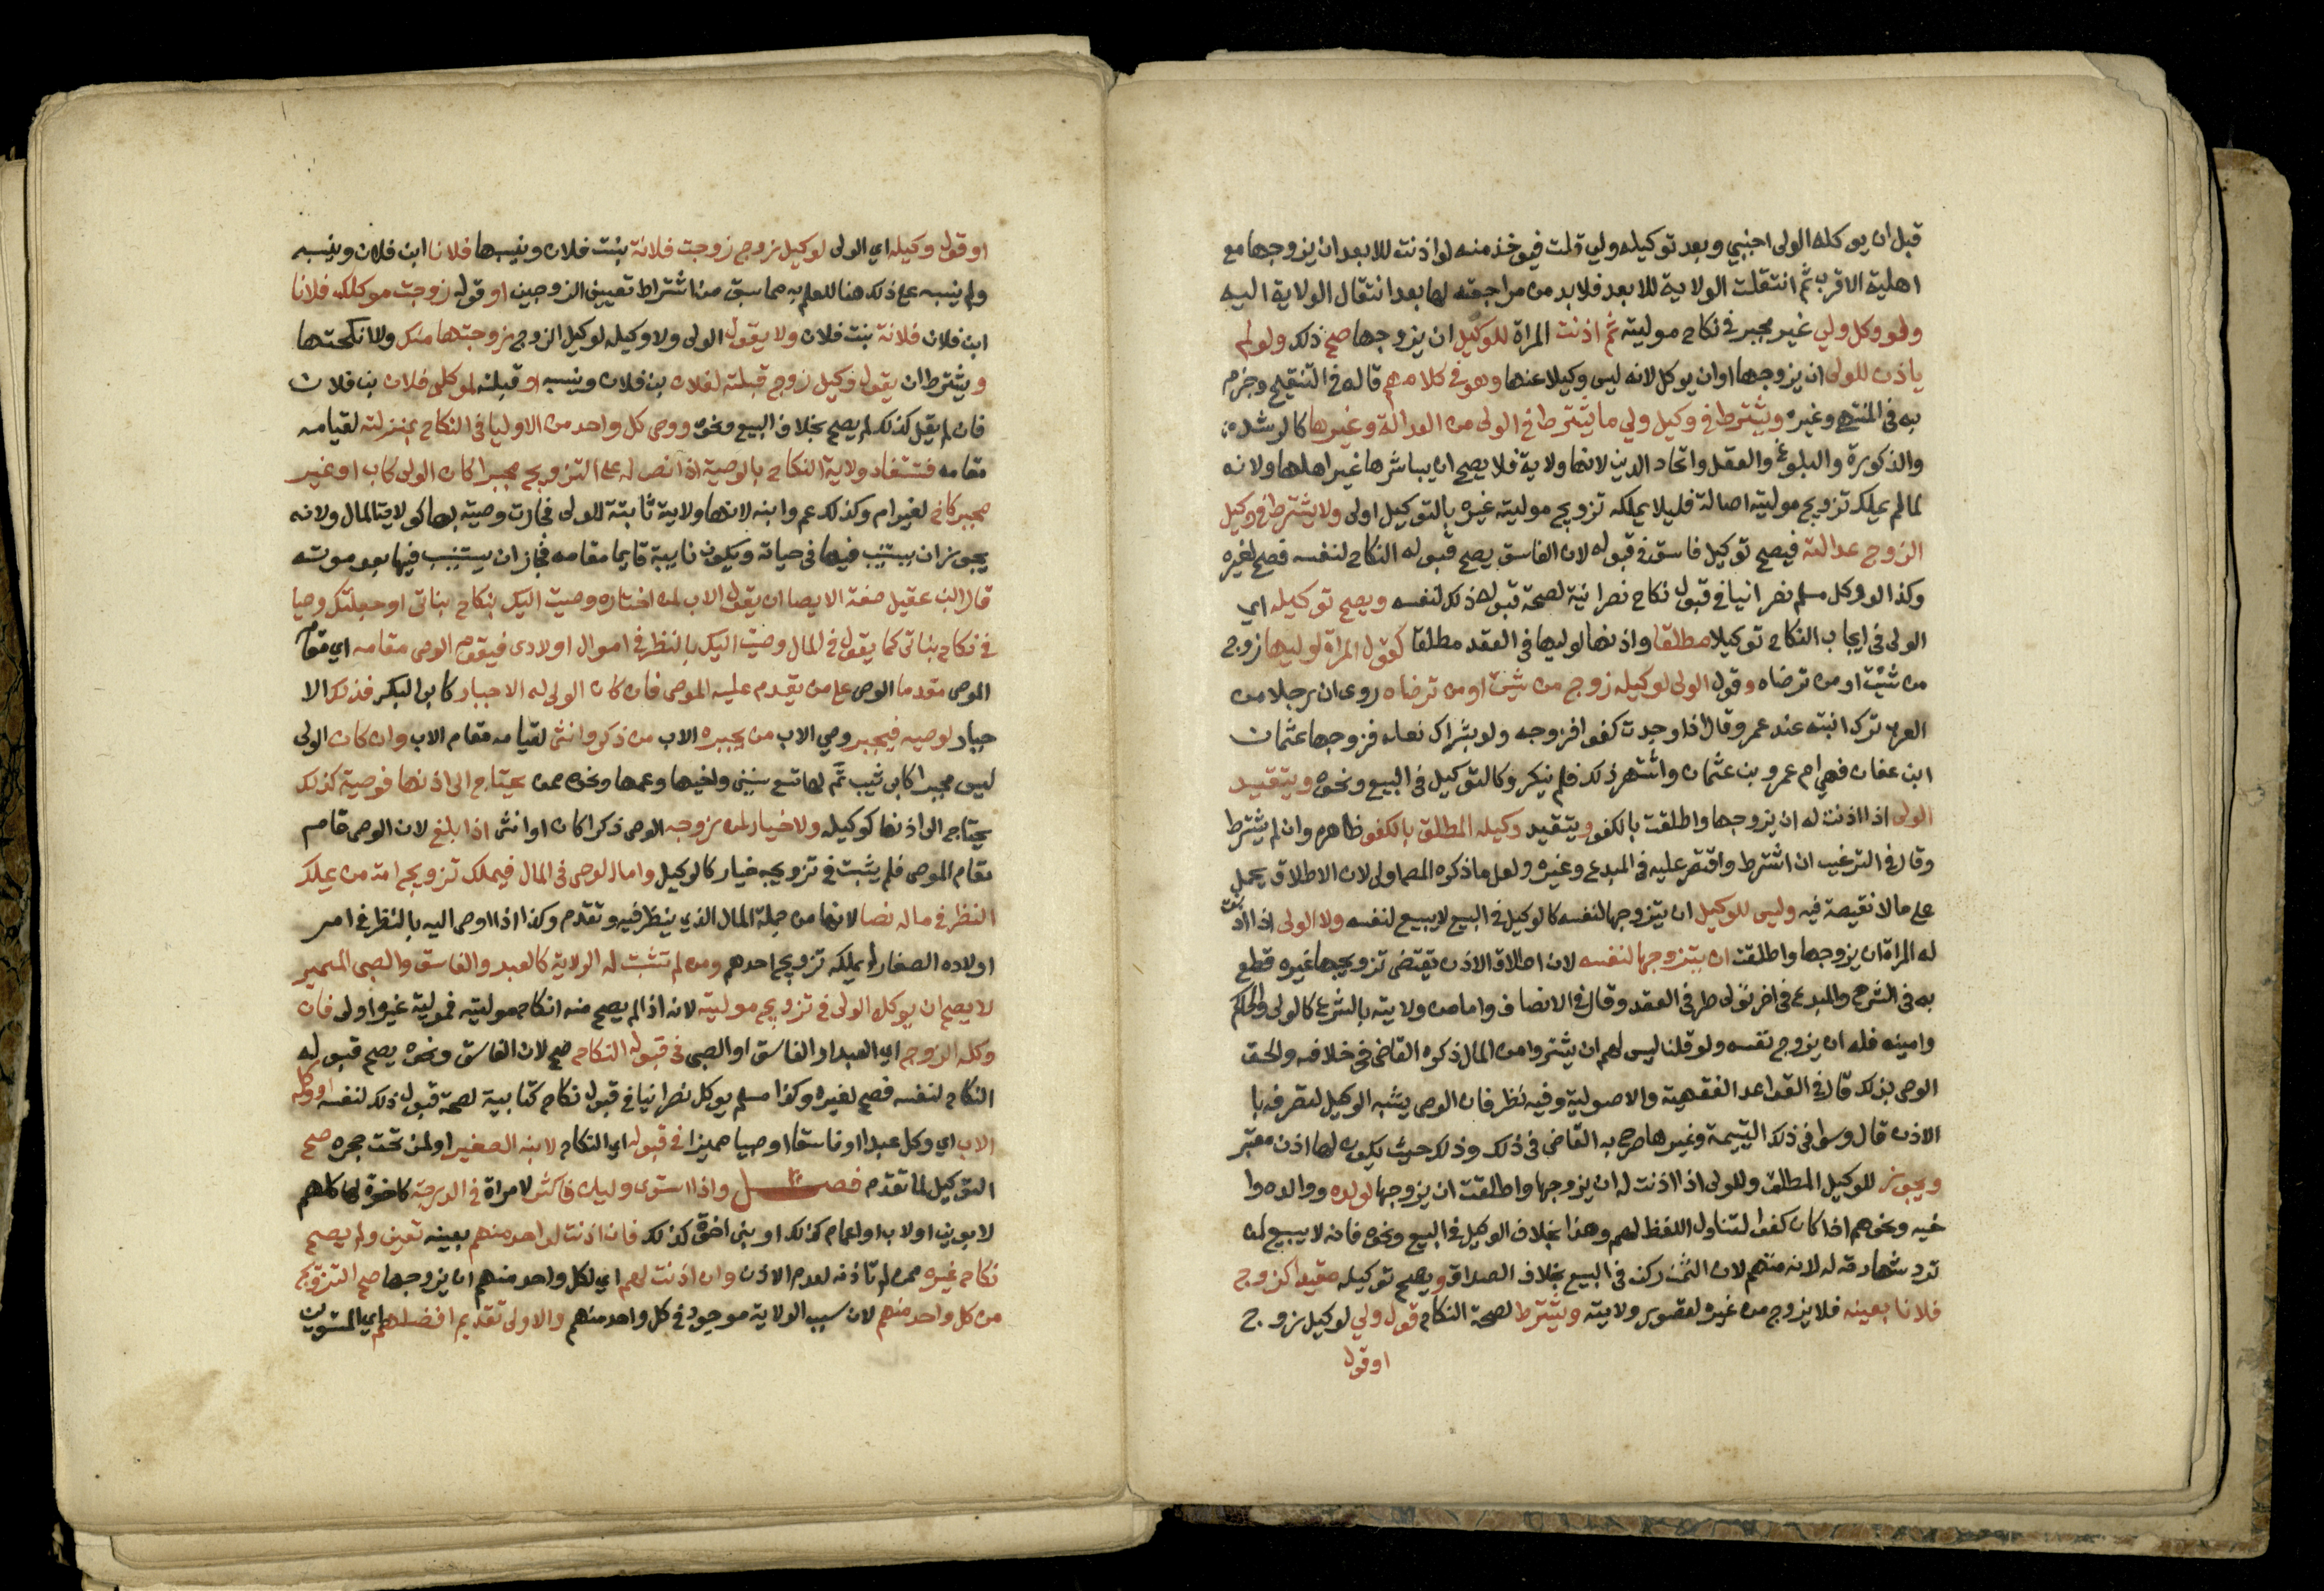 قبل ان يوكله الولى اجنبي وبعد توكيله ولي قلت فيوخذ منه لو اذنت للابعد ان يزوجها مع
اهلية الاقرب ثم انتقلت الولاية للابعد فلابد من مراجعته لها بعد انتقال الولاية اليه
ولو وكل ولي غير مجبر في نكاح موليته ثم اذنت المراة للوكيل ان يزوجها صح ذلك ولو لم
ياذن للولى ان يزوجها او ان يوكل لانه ليس وكيلا عنها وهو في كلامهم قاله في التنقيح وجزم
به في المنتهى وغيره ويشترط في وكيل ولي ما يشترط في الولى من العدالة وغيرها كالرشد
والذكورة والبلوغ والعقل واتحاد الدين لانها ولاية فلا يصح ان يباشرها غير اهلها ولانه
لما لم يملك تزويج موليته اصالة فليلا يملكه تزويج مولية غيره بالتوكيل اولى ولا يشترط في وكيل
الزوج عدالته فيصح توكيل فاسق في قبوله لان الفاسق يصح قبوله النكاح لنفسه فصح لغيره
وكذا لو وكل مسلم نصرانيا في قبول نكاح نصرانية لصحة قبوله ذلك لنفسه ويصح توكيله اي
الولى في ايجاب النكاح توكيلا مطلقا واذنها لوليها في العقد مطلقا كقول المراة لوليها زوج
من شئت او من ترضاه وقول الولى لوكيله زوج من شئت او من ترضاه روى ان رجلا من
العرب ترك ابنته عند عمر وقال اذا وجدت كفوا فزوجه ولو بشراك نعله فزوجها عثمان
ابن عفان فهي ام عمرو بن عثمان واشتهر ذلك فلم ينكر وكالتوكيل في البيع ونحوه ويتقيد
الولى اذا اذنت له ان يزوجها واطلقت بالكفو ويتقيد وكيله المطلق بالكفو ظاهره وان لم يشترط
وقال في الترغيب ان اشترط واقتصر عليه في المبدع وغيره ولعل ما ذكره المص اولى لان الاطلاق يحمل
على ما لا نقيصة فيه وليس للوكيل ان يتزوجها لنفسه كالوكيل في البيع لا يبيع لنفسه ولا الولى اذا اذنت
له المراة ان يزوجها واطلقت ان يتزوجها لنفسه لان اطلاق الاذن يقتضى تزويجها غيره قطع
به في الشرح والمبدع في اخر تولى طرفي العقد وقال في الانصاف واما من ولايته بالشرع كالولى والحاكم
وامينه فله ان يزوج نفسه ولو قلنا ليس لهم ان يشتروا من المال ذكره القاضى في خلافه والحق
الوصى بذلك قال في القواعد الفقهية والاصولية وفيه نظر فان الوصى يشبه الوكيل لتصرفه با
الاذن قال وسوا في ذلك اليتيمة وغيرها صرح به القاضى في ذلك وذلك حيث يكون لها اذن معتبر
ويجوز للوكيل المطلق وللولى اذا اذنت له ان يزوجها واطلقت ان يزوجها لولده ووالده وا
خيه ونحوهم اذا كان كفوا لتناول اللفظ لهم وهذا بخلاف الوكيل في البيع ونحوه فانه لا يبيع لمن
ترد شهادته له لانه متهم لان الثمن ركن في البيع بخلاف الصداق ويصح توكيله مقيدا كزوج
فلانا بعينه فلا يزوج من غيره لقصور ولايته ويشترط لصحة النكاح قول ولي لوكيل زوج
او قول
او قول وكيله اي الولى لوكيل زوج زوجت فلانة بنت فلان وينسبها فلانا ابن فلان وينسبه
ولم ينبه على ذلك هنا للعلم به مما سبق من اشتراط تعيين الزوجين او قوله زوجت موكلك فلانا
ابن فلان فلانة بنت فلان ولا يقول الولى ولا وكيله لوكيل الزوج زوجتها منك ولا انكحتها
ويشترط ان يقول وكيل زوج قبلته لفلان بن فلان وينسبه او قبلته لموكلى فلان بن فلان
فان لم يقل كذلك لم يصح بخلاف البيع ونحوه ووصى كل واحد من الاوليا في النكاح بمنزلته لقيامه
مقامه فتستفاد ولاية النكاح بالوصية اذا نص له على التزويج مجبرا كان الولى كاب او غير
مجبر كاخ لغير ام وكذلك عم وابنه لانها ولاية ثابتة للولى فجازت وصيته بها كولاية المال ولانه
يجوز ان يستنيب فيها في حياته ويكون نايبه قايما مقامه فجاز ان يستنيب فيها بعد موته
قال ابن عقيل صفة الايصا ان يقول الاب لمن اختاره وصيت اليك بنكاح بناتى او جعلتك وصيا
في نكاح بناتى كما يقول في المال وصيت اليك بالنظر في اموال اولادى فيقوم الوصى مقامه اي مقام
الموصى مقدما الوصى على من يقدم عليه الموصى فان كان الولى له الاجبار كابى البكر فذلك الا
جبار لوصيه فيجبر وصي الاب من يجبره الاب من ذكر وانثى لقيامه مقام الاب وان كان الولى
ليس مجبرا كابى ثيب تم لها تسع سنين واخيها وعمها ونحوه ممن يحتاج الى اذنها فوصيه كذلك
يحتاج الى اذنها كوكيله ولا خيار لمن يزوجه الوصى ذكرا كان او انثى اذا بلغ لان الوصى قام
مقام الموصى فلم يثبت في تزويجه خيار كالوكيل واما الوصى في المال فيملك تزويج امة من يملك
النظر في ماله نصا لانها من جملة المال الذي ينظر فيه وتقدم وكذا اذا اوصى اليه بالنظر في امر
اولاده الصغار لم يملك تزويج احدهم ومن لم تثبت له الولاية كالعبد والفاسق والصبى المميز
لا يصح ان يوكله الولى في تزويج موليته لانه اذا لم يصح منه انكاح موليته فمولية غيره اولى فان
وكله الزوج اي العبد او الفاسق او الصبى في قبوله النكاح صح لان الفاسق ونحوه يصح قبوله
النكاح لنفسه فصح لغيره وكذا مسلم يوكل نصرانيا في قبول نكاح كتابية لصحة قبول ذلك لنفسه او وكله
الاب اي وكل عبدا او فاسقا او صبيا مميزا في قبوله اي النكاح لابنه الصغير او لمن تحت حجره صح
التوكيل لما تقدم فصل واذا استوى وليان فاكثر لامراة في الدرجة كاخوة لها كلهم
لابوين او لاب او اعمام كذلك او بنى اخوة كذلك فان اذنت لواحد منهم بعينه تعين ولم يصح
نكاح غيره ممن لم تاذنه لعدم الاذن وان اذنت لهم اي لكل واحد منهم ان يزوجها صح التزويج
من كل واحد منهم لان سبب الولاية موجود في كل واحد منهم والاولى تقديم افضلهم اي المستويين